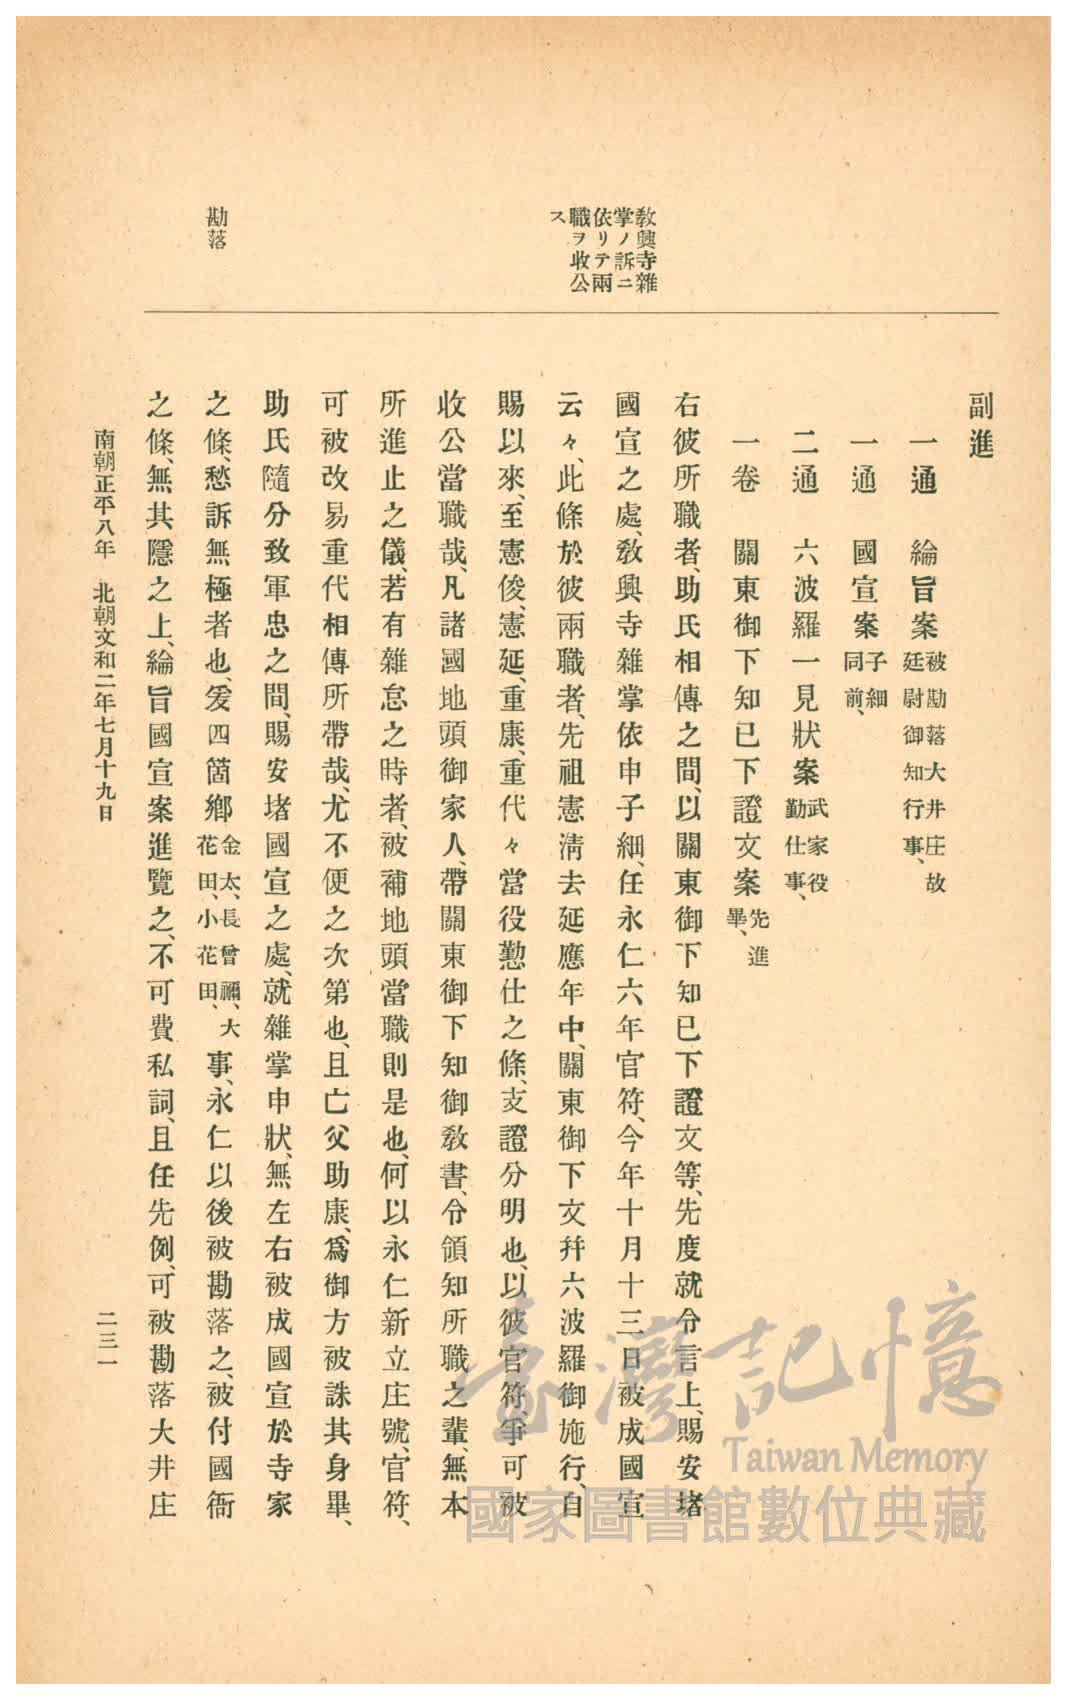 敎興寺雜
掌ノ訴ニ
依リテ兩
職ヲ收公
ス
勘落
副進
一通 綸旨案 被勘落大井庄故
廷尉御知行事、
一通 國宣案 子細
同前、
二通 六波羅一見狀案 武家役
勤仕事、
一卷 關東御下知已下證文案 先進
畢、
右彼所職者、助氏相傳之間、以關東御下知已下證文等、先度就令言上、賜安堵
國宣之處、敎興寺雜掌依申子細、任永仁六年官符、今年十月十三日被成國宣
云々、此條於彼兩職者、先祖憲淸去延應年中、關東御下文幷六波羅御施行、自
賜以來、至憲俊、憲延、重康、重代々當役懃仕之條、支證分明也、以彼官符、爭可被
收公當職哉、凡諸國地頭御家人、帶關東御下知御敎書、令領知所職之輩、無本
所進止之儀、若有雜怠之時者、被補地頭當職則是也、何以永仁新立庄號、官符、
可被改易重代相傳所帶哉、尤不便之次第也、且亡父助康、爲御方被誅其身畢、
助氏隨分致軍忠之間、賜安堵國宣之處、就雜掌申狀、無左右被成國宣於寺家
之條、愁訴無極者也、爰四箇鄕 金太、長曾禰、大
花田、小花田、 事、永仁以後被勘落之、被付國衙
之條、無其隱之上、綸旨國宣案進覽之、不可費私詞、且任先例、可被勘落大井庄
南朝正平八年 北朝文和二年七月十九日
二三一
臺灣記憶
Taiwan Memory
國家圖書館數位典藏